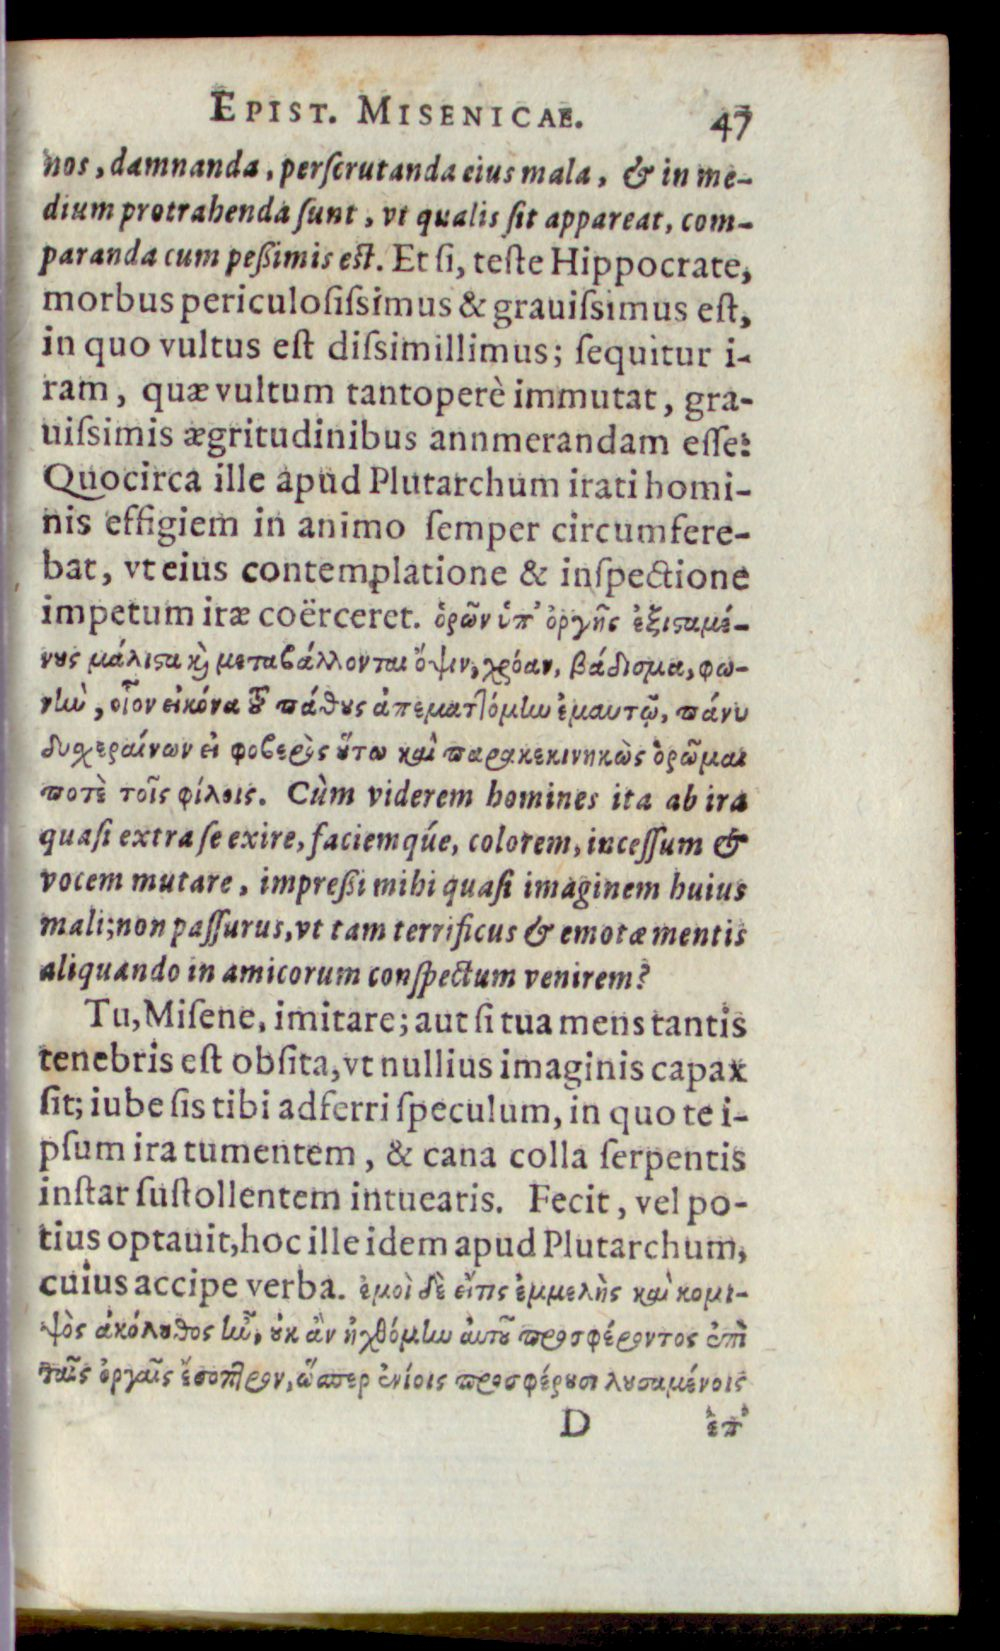 EPIST. MISENICAE. 47
nos, damnanda, perſcrutanda eius mala, & in me-
dium protrahenda ſunt, vt qualis ſit appareat, com-
paranda cum peßimis eſt. Et ſi, teſte Hippocrate,
morbus periculoſiſsimus & grauiſsimus eſt,
in quo vultus eſt diſsimillimus; ſequitur i-
ram, quæ vultum tantoperè immutat, gra-
uiſsimis ægritudinibus annmerandam eſſe:
Quocirca ille apud Plutarchum irati homi-
nis effigiem in animo ſemper circumfere-
bat, vt eius contemplatione & inſpectione
impetum iræ coërceret. ὁρῶν ὑπ' ὀργῆς ἐξιϛαμέ-
νȣς μάλιϛα κ̀ μεταβάλλονται ὄψιν, χρόαν, βάδισμα, φω-
νὴν, οἷον εἰκόνα τῦ πάθȣς ἀπεματτόμην ἐμαυτῷ, πάνυ
δυχεραίνων εἰ φοβερὸς ȣ̔́τω καὶ παρακεκινηκὼς ὁρῶμαι
ποτὲ τοῖς φίλοις. Cùm viderem homines ita ab ira
quaſi extra ſe exire, faciemqúe, colorem, inceſſum &
vocem mutare, impreßi mihi quaſi imaginem huius
mali; non paſſurus, vt tam terrificus & emotæ mentis
aliquando in amicorum conſpectum venirem?
Tu, Miſene, imitare; aut ſi tua mens tantis
tenebris eſt obſita, vt nullius imaginis capax
ſit; iube ſis tibi adferri ſpeculum, in quo te i-
pſum ira tumentem, & cana colla ſerpentis
inſtar ſuſtollentem intuearis. Fecit, vel po-
tius optauit, hoc ille idem apud Plutarchum,
cuius accipe verba. ἐμοὶ δὲ εἴ πς ἐμμελὴς καὶ κομ-
ψὸς ἀκόλȣθος ἦν, ȣ̓κ ἂν ἠχθόμην αὐτȣ͂ προσφέροντος ἐπὶ
ταῖς ὀργαῖς ἔσοπτρον, ὥσπερ ἐνίοις προσφέρȣσι λȣσαμένοις
D ἐπ'